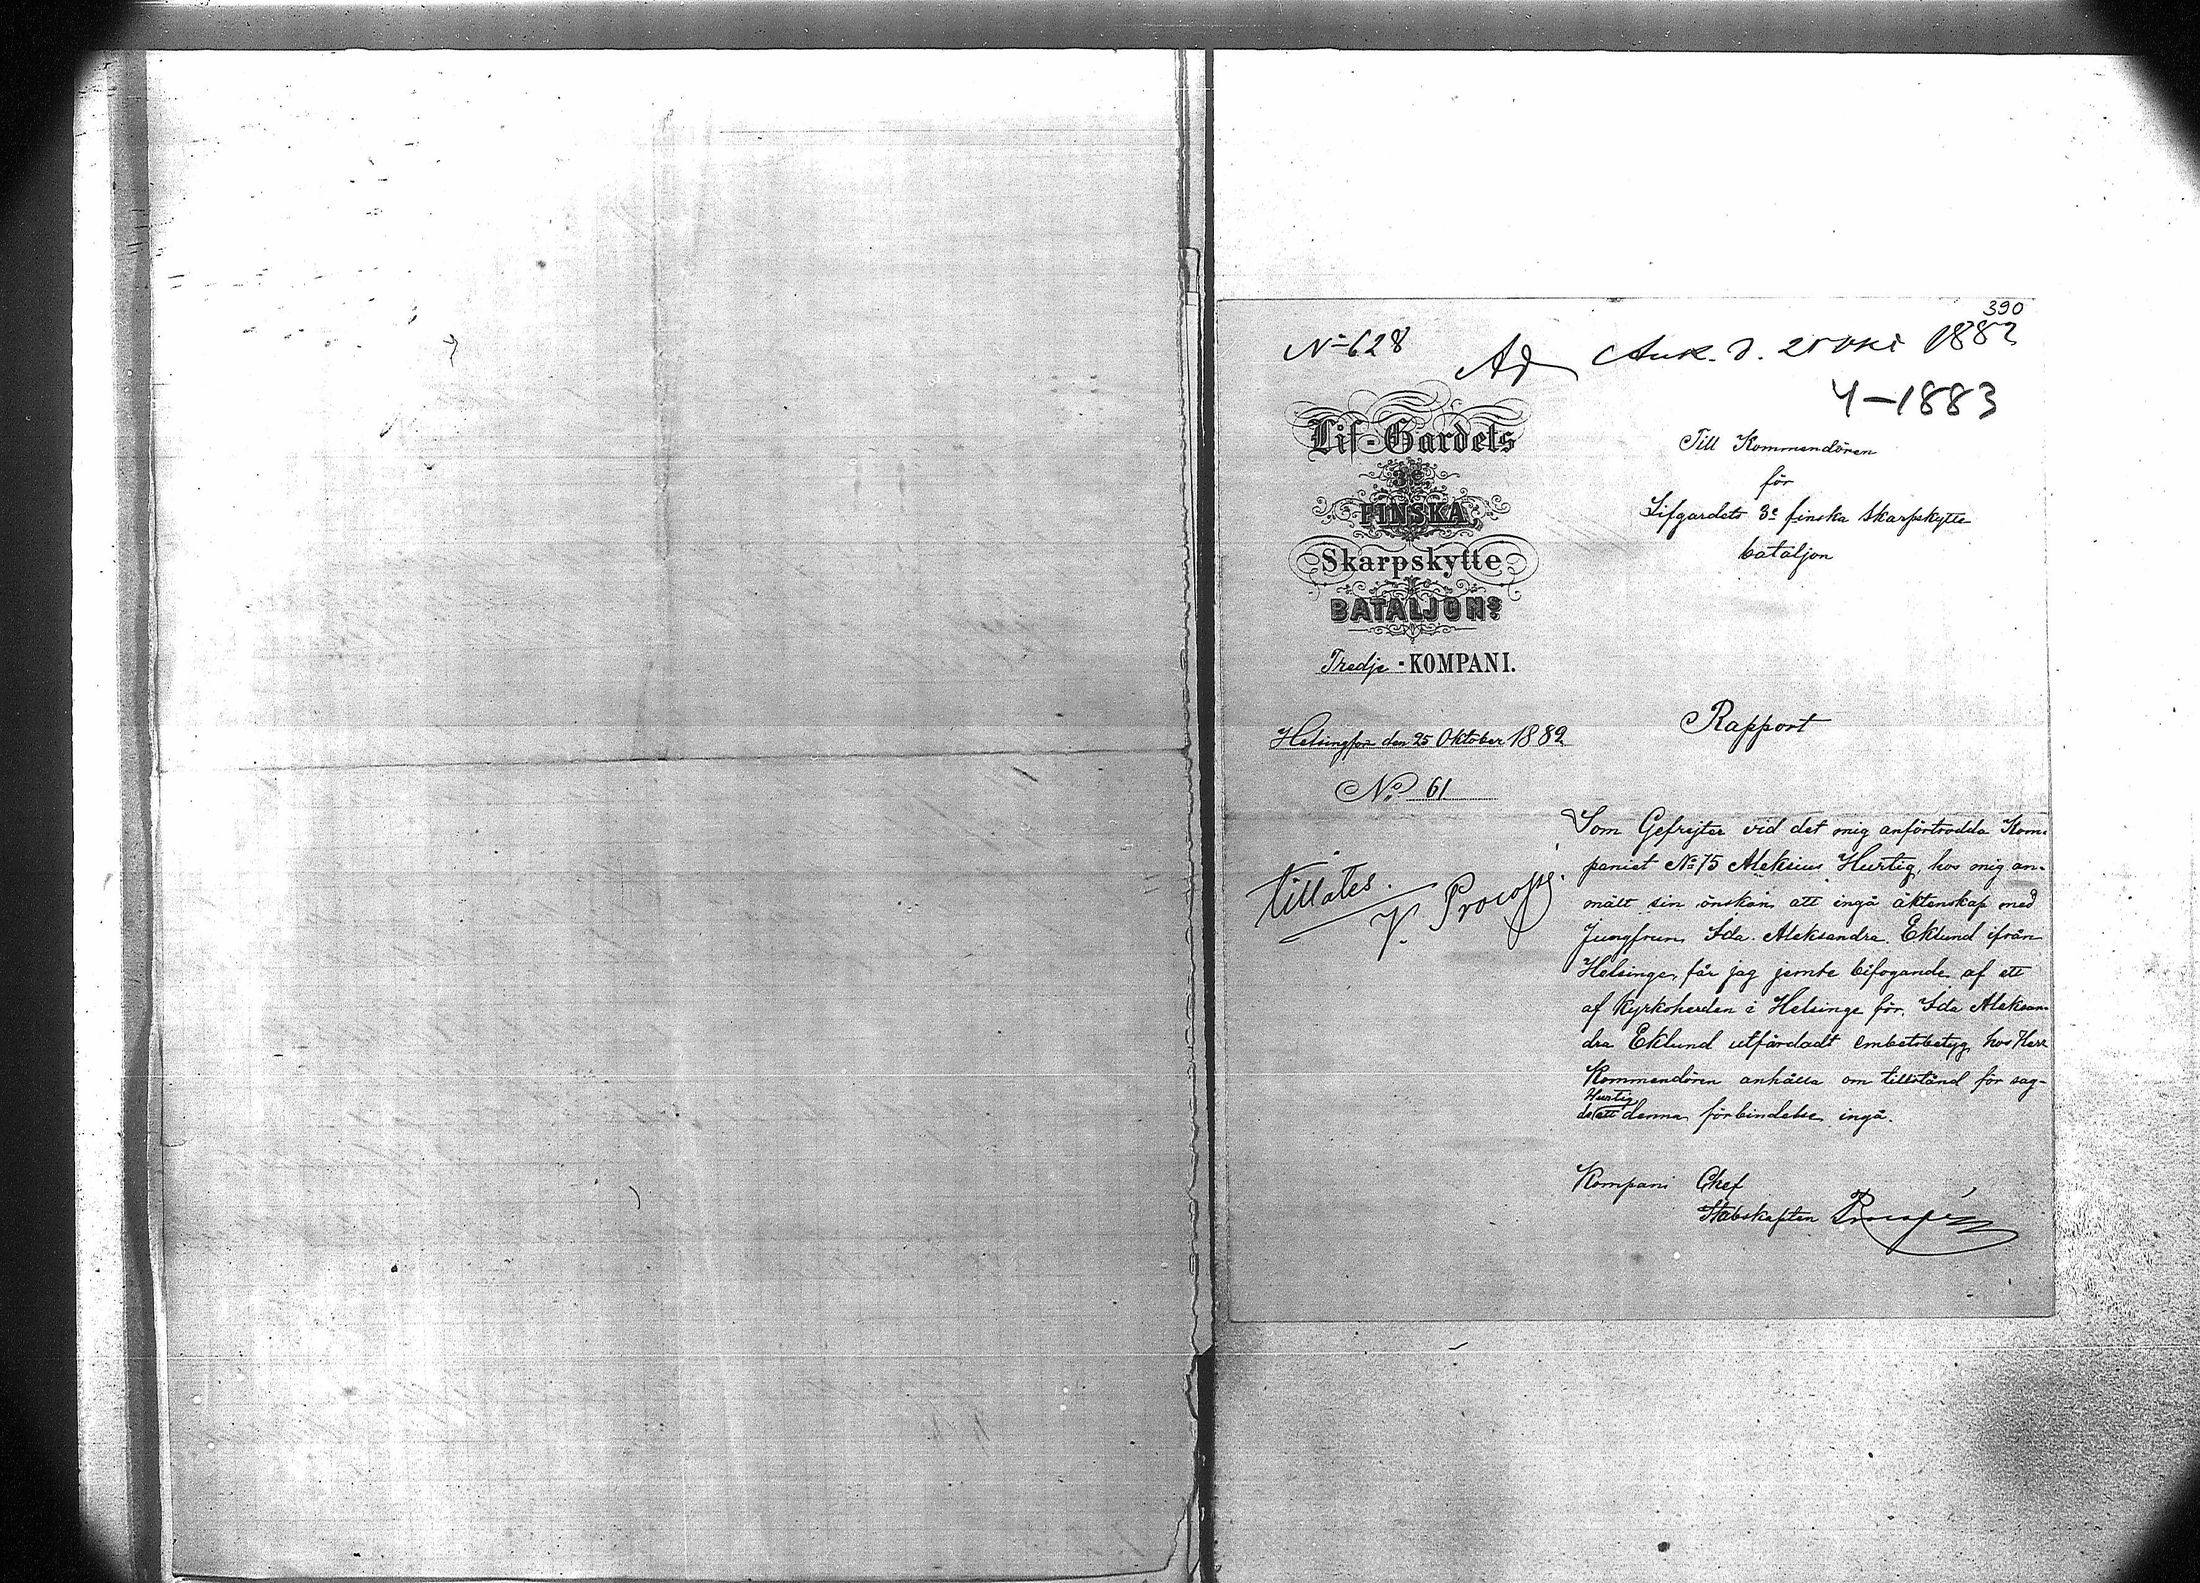 390
No 628
Ad Ank. d. 25 Okt 1882
4-1883
Lif-Gardets
3e
FINSKA,
Skarpskytte
BATALJONS
Tredje - KOMPANI.
Helsingfors den 25 Oktober 1882
No 61
tillåtes.
V. Procopé.
Till Kommendören
för
Lifgardets 3e finska Skarpskytte
bataljon
Rapport
Som Gefrejter vid det mig anförtrodda Kom-
paniet No 75 Aleksius Hurtig, hos mig an-
mält sin önskan att ingå äktenskap med
Jungfrun Ida Aleksandra Eklund ifrån
Helsinge, får jag jemte bifogande af ett
af Kyrkoherden i Helsinge för Ida Aleksan-
dra Eklund utfärdadt embetsbetyg hos Herr
Kommendören anhålla om tillstånd för sag-
Hurtig
de att denna förbindelse ingå.
Kompani Chef
Stabskapten Procopé